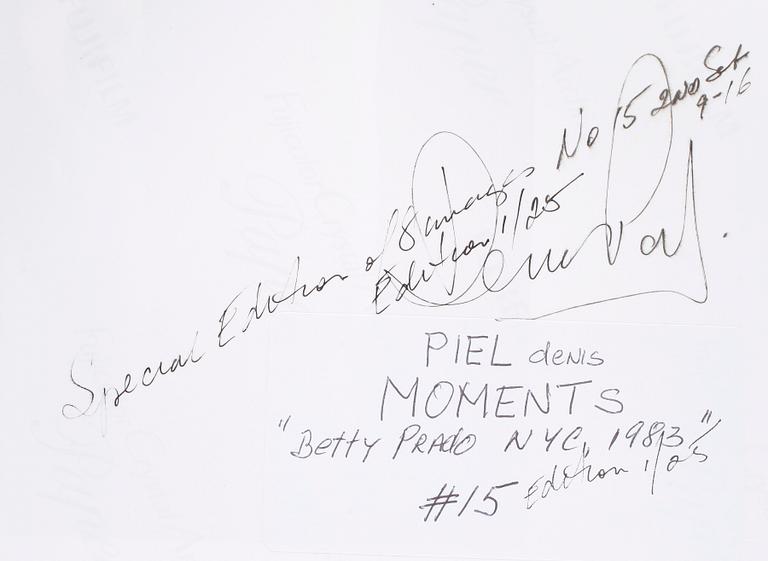 Special Edition of 8 images No 15 2ND Set
9-16
Edition 1/25
Denis Piel.
PIEL denis
MOMENTS
"Betty PRADO NYC, 1983"
#15 Edition 1/25